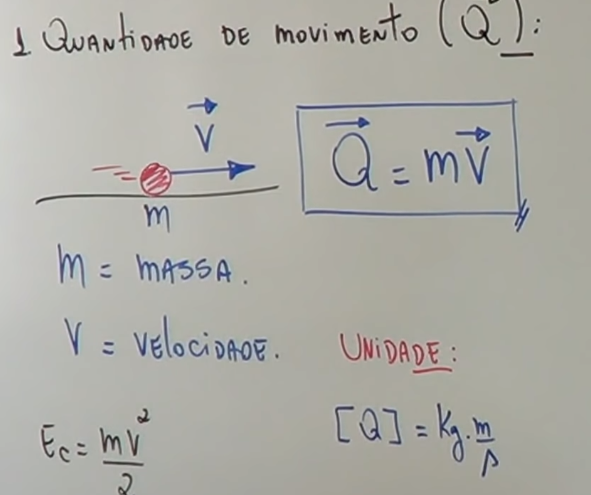 1 QUANTIDADE DE MOVIMENTO (Q):
V
m
Q = mV
m = MASSA.
V = VELOCIDADE.
UNIDADE:
Ec = mV²/2
[Q] = Kg.m/s